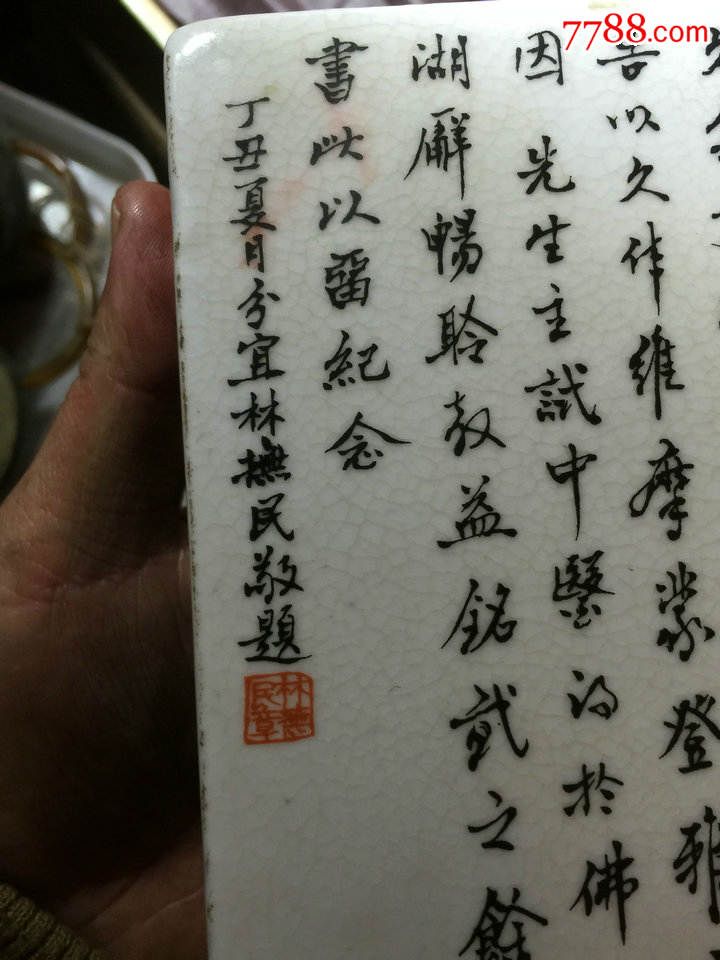 7788.com
告以久伴維摩蒙登雅
因 先生主試中醫得於佛
湖廨暢聆教益銘貳之餘
書此以留紀念
丁丑夏月分宜林撫民敬題
林撫民章